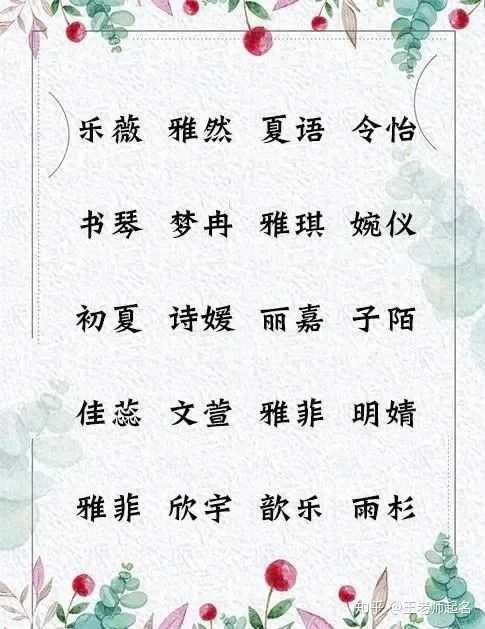 乐薇 雅然 夏语 令怡
书琴 梦冉 雅琪 婉仪
初夏 诗媛 丽嘉 子陌
佳蕊 文萱 雅菲 明婧
雅菲 欣宇 歆乐 雨杉
知乎 @王老师起名